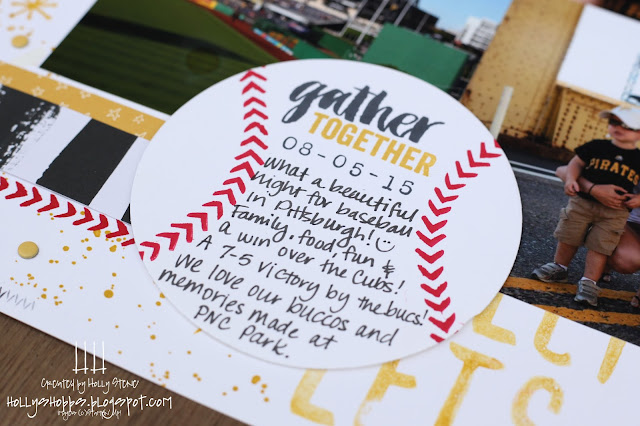 gather
TOGETHER
08-05-15
What a beautiful
night for baseball
in Pittsburgh!
Family, food, fun &
a win over the Cubs!
A 7-5 victory by the bucs!
We love our buccos and
memories made at
PNC Park.
PIRATES
LETS
Created by Holly Stene
hollyshobbs.blogspot.com